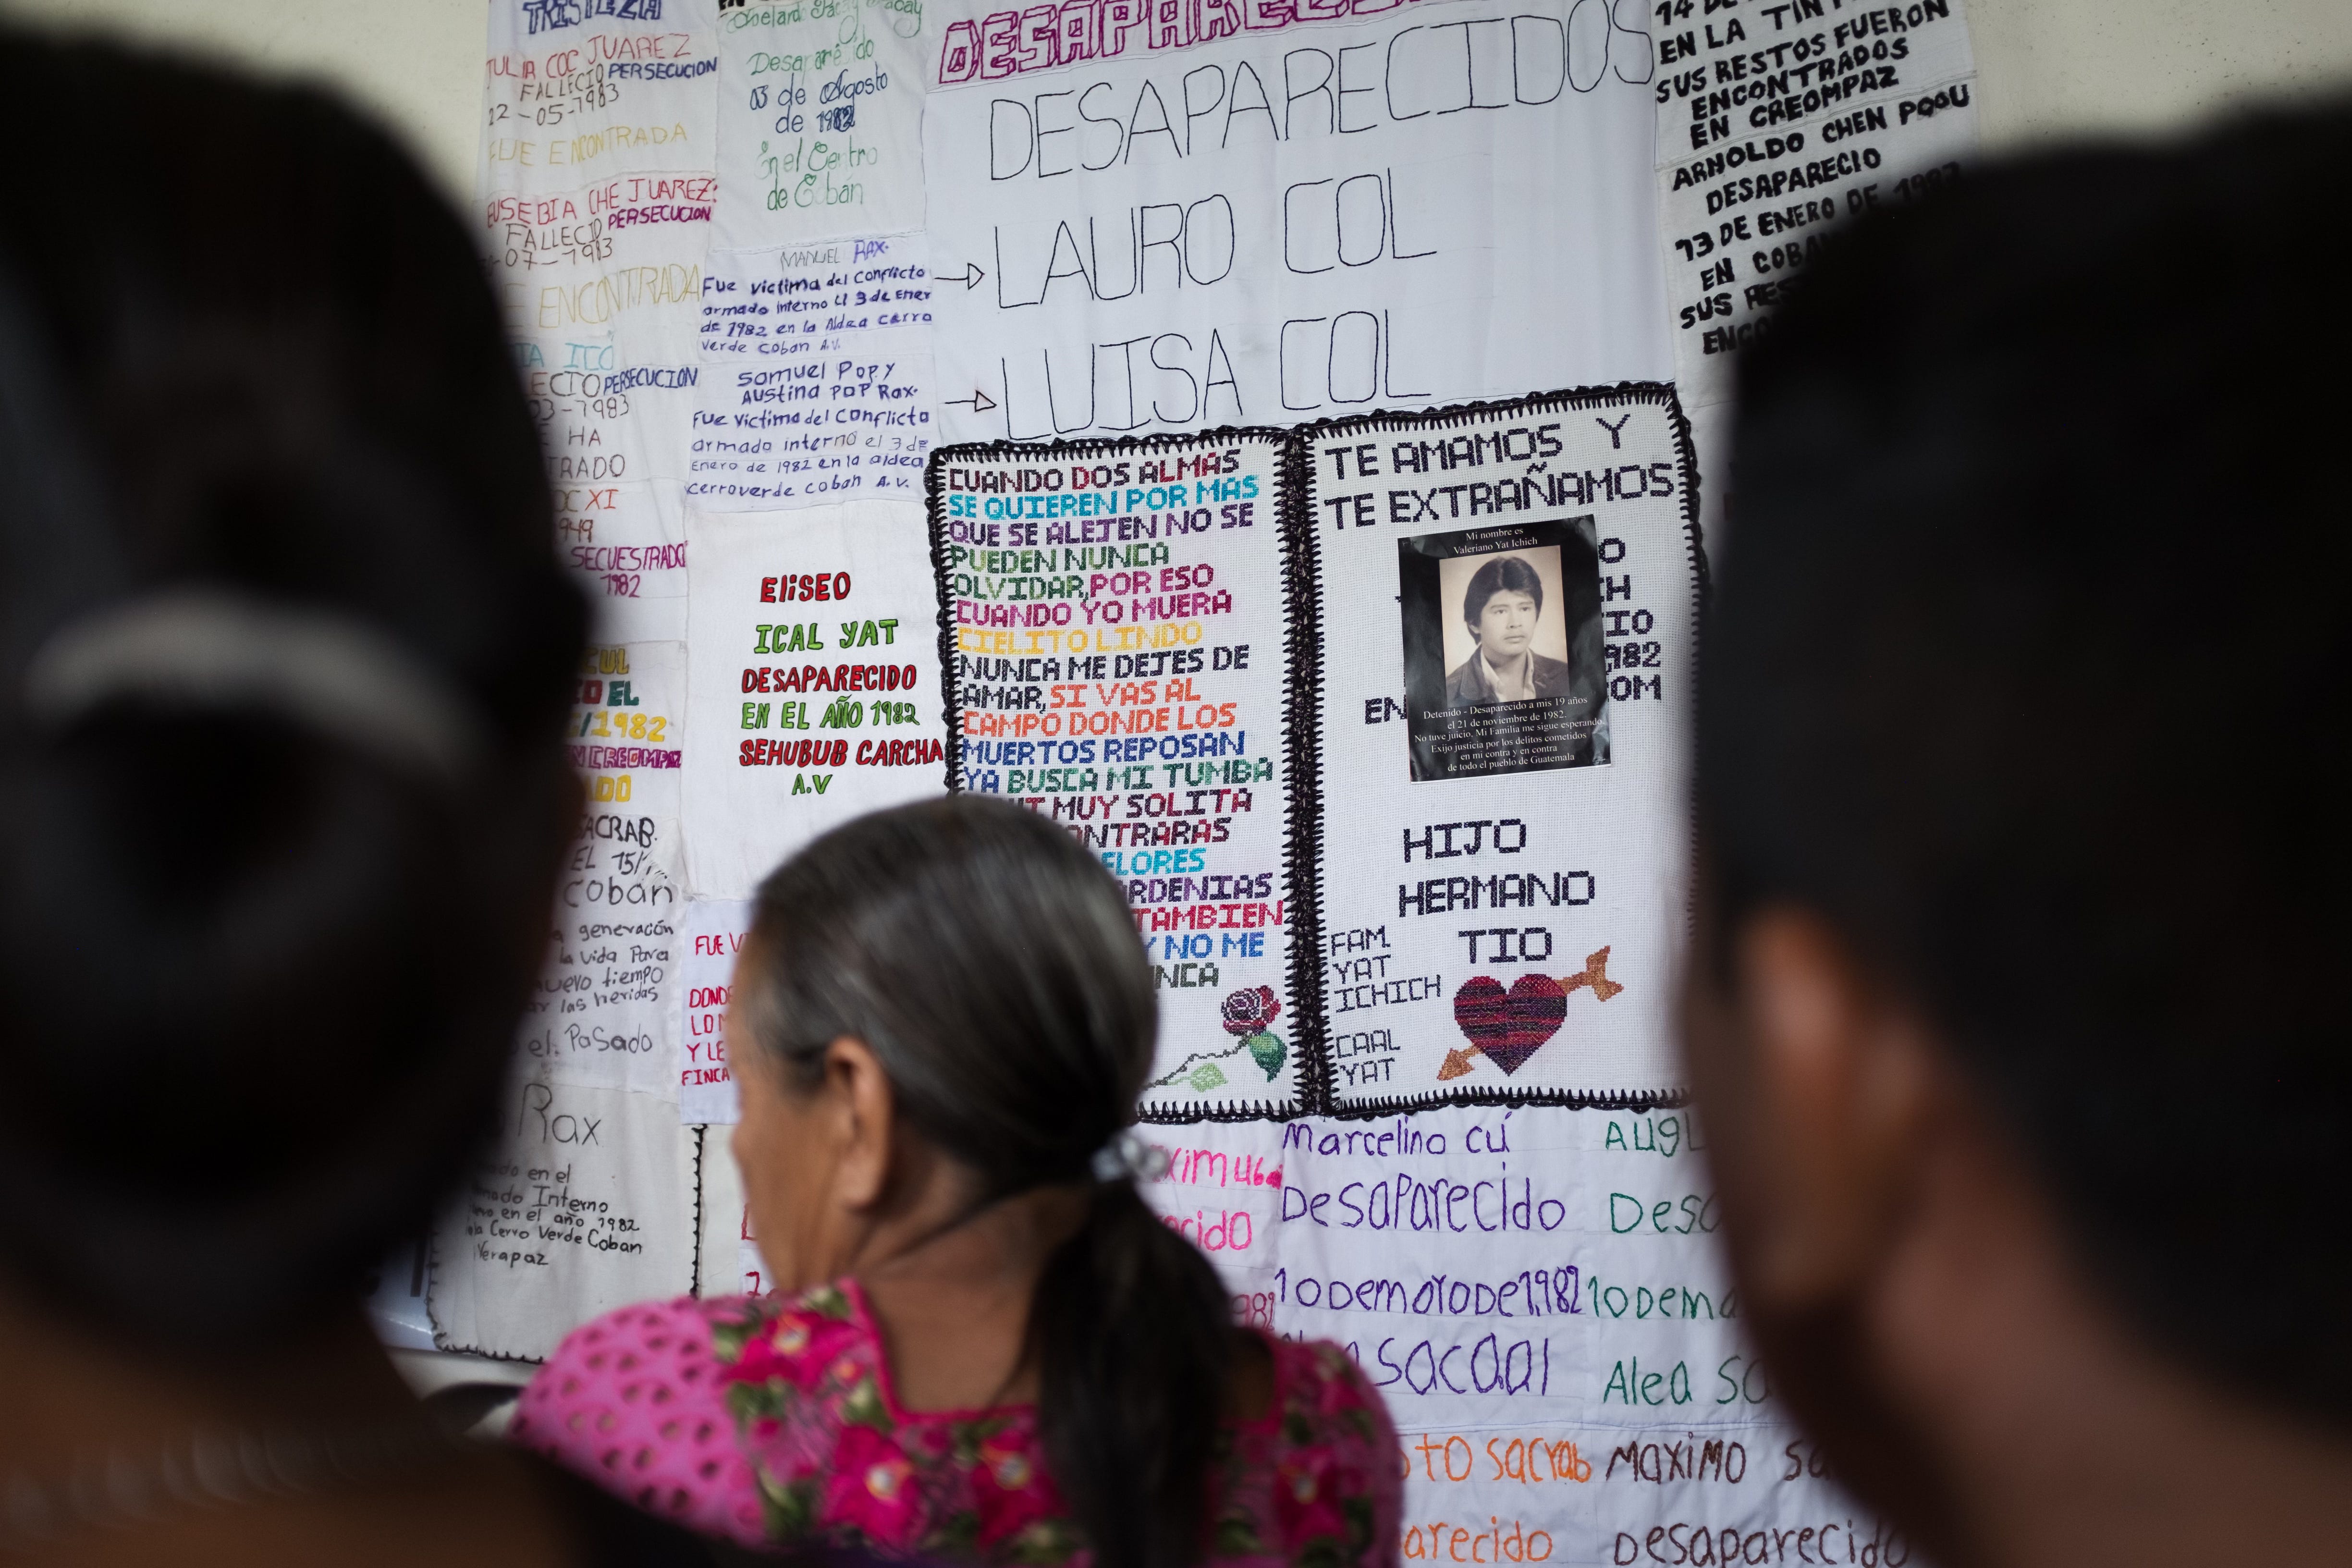 TRISTEZA
JULIA COC JUAREZ
FALLECIO PERSECUCION
22-05-1983
FUE ENCONTRADA
EUSEBIA CHE JUAREZ:
FALLECIO PERSECUCION
07-1983
ENCONTRADA
ITÓ
PERSECUCION
03-1983
HA
XI
1949
SECUESTRADO
1982
EL
/1982
EN CREOMPAZ
SACRAB.
EL 15/
Cobán
generación
la vida Para
nuevo tiempo
las heridas
el. Pasado
Rax
en el
Interno
en el año 1982
Cerro Verde Coban
Verapaz
Desaparecido
03 de Agosto
de 1982
En el Centro
de Cobán
MANUEL RAX.
Fue victima del conflicto
armado interno el 3 de Ener
de 1982 en la Aldea cerro
verde coban A.V.
Samuel Pop y
Austina Pop Rax.
Fue victima del conflicto
armado interno el 3 de
Enero de 1982 en la aldea
cerroverde coban A.V.
ELiSEO
ICAL YAT
DESAPARECIDO
EN EL AÑO 1982
SEHUBUB CARCHA
A.V
FUE V
DONDE
LO M
Y LE
FINCA
DESAPARECIDOS
LAURO COL
LUISA COL
CUANDO DOS ALMAS
SE QUIEREN POR MAS
QUE SE ALEJEN NO SE
PUEDEN NUNCA
OLVIDAR, POR ESO
CUANDO YO MUERA
CIELITO LINDO
NUNCA ME DEJES DE
AMAR, SI VAS AL
CAMPO DONDE LOS
MUERTOS REPOSAN
YA BUSCA MI TUMBA
MUY SOLITA
ONTRARAS
FLORES
ARDENIAS
TAMBIEN
Y NO ME
NCA
TE AMAMOS Y
TE EXTRAÑAMOS
O
CH
IO
1982
EN OM
Mi nombre es
Valeriano Yat Ichich
Detenido - Desaparecido a mis 19 años
el 21 de noviembre de 1982.
No tuve juicio. Mi Familia me sigue esperando.
Exijo justicia por los delitos cometidos
en mi contra y en contra
de todo el pueblo de Guatemala
HIJO
HERMANO
TIO
FAM.
YAT
ICHICH
CAAL
YAT
14 DE
EN LA TINT
SUS RESTOS FUERON
ENCONTRADOS
EN CREOMPAZ
ARNOLDO CHEN POOU
DESAPARECIO
13 DE ENERO DE 1982
EN COBAN
SUS RES
ENCO
ximuba
ecido
1982
Marcelino cú
Desaparecido
10 DE mayo DE 1982
Sacaal
AUg
Desa
10 DEMa
Alea Sa
to Sacrab
arecido
MAXIMO Sa
Desaparecido